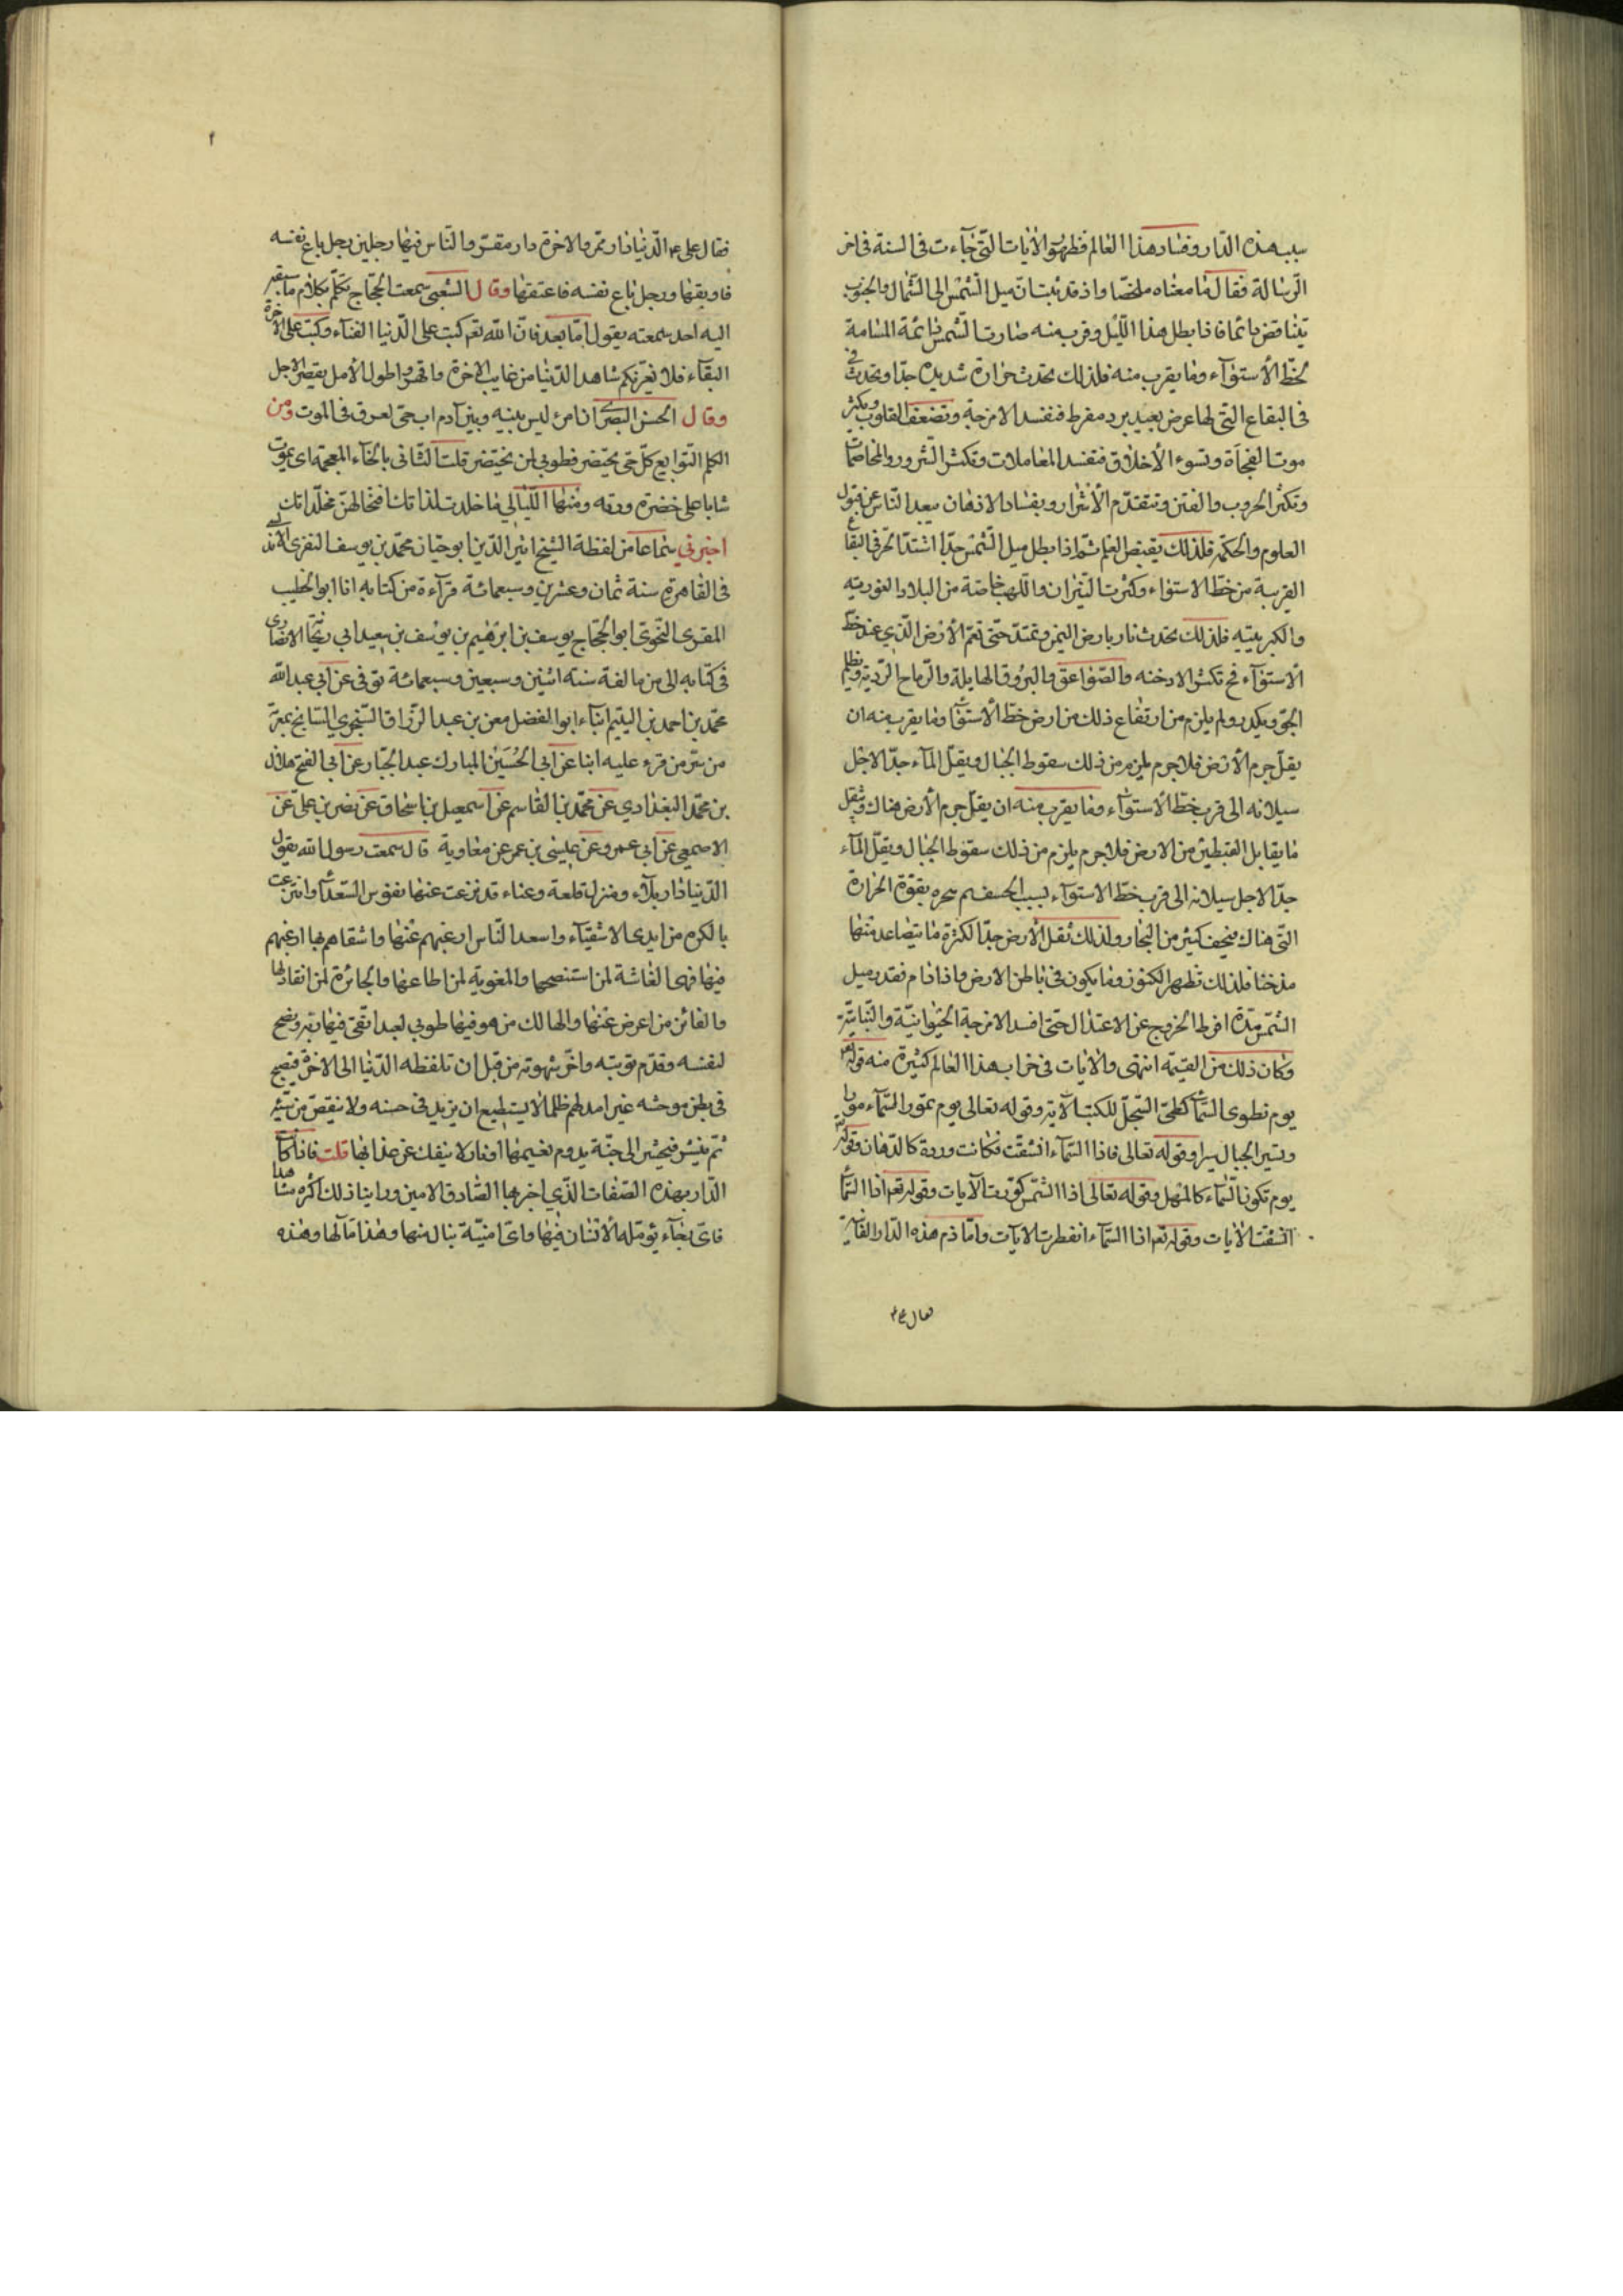 سبب هذه الدار وفساد هذا العالم فظهرت الآيات التي جاءت في السنة في آخر
الرسالة فقال ما معناه ملخصا واذ قد ثبت ان ميل الشمس الى الشمال والجنوب
يتناقض دائما فاذا بطل هذا الليل وقرب منه صارت الشمس دائمة المسامتة
لخط الأستوآء وما يقرب منه فلذلك يحدث حرارة شديدة جدا ويحدث في
في البقاع التي لها عرض بعيد برد مفرط فتفسد الامزجة وتضعف القلوب ويكثر
موت الفجأة وتسوء الأخلاق فتفسد المعاملات وتكثر الشرور والمخاصمات
وتكثر الحروب والفتن وتتقدم الأشرار وبفساد الاذهان يبعد الناس عن قبول
العلوم والحكمة فلذلك يقبض العلم ثم اذا بطل ميل الشمس جدا اشتد الحر في البقاع
القريبة من خط الاستواء وكثرت النيران واللهب خاصة من البلاد الغورية
والكبريتية فلذلك يحدث نار بارض اليمن وتمتد حتى تعم الأرض الذي عند خط
الاستوآء فح تكثر الادخنه والصواعق والبروق الهايلة والرياح الردية ويظلم
الجو ويكدر ولم يلزم من ارتفاع ذلك من ارض خط الأستوآء وما يقرب منه ان
يقل جرم الأرض فلا جرم يلزم من ذلك سقوط الجبال ويقل المآء جدا لاجل
سيلانه الى قرب خط الأستوآء وما يقرب منه ان يقل جرم الأرض هناك وثقل
ما يقابل القبطين من الارض فلا جرم يلزم من ذلك سقوط الجبال ويقل المآء
جدا لاجل سيلانه الى قرب خط الاستوآء بسبب الخسف ثم بقوة الحرارة
التي هناك كثير من البخار ولذلك تقل الأرض جدا لكثرة ما يتصاعد منها
مدخنا فلذلك تظهر الكنوز وما يكون في باطن الارض واذا دام فقد ميل
الشمس مدة افرط الخروج عن الاعتدال حتى افسد الامزجة الحيوانية والنباتية
وكان ذلك من القيمة انتهى والآيات في خراب هذا العالم كثيرة منه قوله تع
يوم نطوى السمآء كطي السجل للكتب الآية وقوله تعالى يوم تمور السمآء مورا
وتسير الجبال سيرا وقوله تعالى فاذا السمآء انشقت فكانت وردة كالدهان وقوله تع
يوم تكون السمآء كالمهل وقوله تعالى اذا الشمس كورت الآيات وقوله تع اذا السمآء
انشقت الآيات وقوله تع اذا السمآء انفطرت الآيات واما ذم هذه الدار الفانية
فقال علي ع
٢
فقال على ع الدنيا دار ممر والاخرة دار مقر والناس فيها رجلين رجل باع نفسه
فاوبقها ورجل ابتاع نفسه فاعتقها وقال الشعبى سمعت الحجاج تكلم بكلام ما سبقه
اليه احد سمعته يقول اما بعد فان الله تع كتب على الدنيا الفنآء وكتب على الاخرة
البقآء فلا يغرنكم شاهد الدنيا من غايب الاخرة واقهروا طول الأمل بقصر الاجل
وقال الحسن البصرى ان امرء ليس بينه وبين آدم اب حي لعرق في الموت ومن
الكلم التوابع كل حي يحتضر فطوبى لمن يختضر قلت الثانى بالخآء المعجمة اى يموت
شابا على خضرة ورقه ومنها الليالي ما خلدت لذاتك افتخالهن مخلداتك
اخبرني سماعا من لفظه الشيخ اثير الدين ابو حيان محمد بن يوسف النفزى الاندلسى
في القاهرة سنة ثمان وعشرين وسبعمائة قرآءة من كتابه انا ابو الخطيب
المقرى النحوى ابو الحجاج يوسف بن ابرهيم بن يوسف بن سعيد ابي ريحانة الانصارى
فى كتابه الى من مالقة سنة اثنين وسبعين وسبعمائة توفى عن ابي عبد الله
محمد بن احمد بن اليتيم انباء ابو الفضل معن بن عبد الرزاق السنجري السائح بمعرة
من سر من قرء عليه انبا عن أبي الحسين المبارك عبد الجبار عن أبي الفتح هلال
بن محمد البغدادي عن محمد بن القاسم عن اسمعيل بن اسحاق عن نصر بن على عن
الاصمعى عن ابي عمرو عن عيسى بن عمر عن معاوية قال سمعت رسول الله يقول
الدنيا دار بلآء ومنزل قلعة وعناء قد نزعت عنها نفوس السعدآء وانتزعت
بالكره من ايدى الاشقيآء واسعد الناس ارغبهم عنها واشقاهم بها ارغبهم
فيها فهى الغاشة لمن استنصحها والمغوية لمن اطاعها والجائرة لمن انقاد لها
والفائز من اعرض عنها والهالك من هوى فيها طوبى لعبد اتقى فيها ربه ونصح
لنفسه وقدم توبته واخر شهوته من قبل ان تلفظه الدنيا الى الاخرة فيصبح
فى بطن موحشه غبرا مدلهم ظلما لا يستطيع ان يزيد فى حسنه ولا ينقص من سيئه
ثم ينشر فيحشر الى جنة يدوم نعيمها او نار لا ينفك عن عذابها قلت فاذا كانت
الدار بهذه الصفات الذي اخبر بها الصادق الامين وراينا ذلك اكثره مشاهدا
فاى بقآء يؤمله الأنسان فيها واى امنية ينال منها وهذا مآلها وهذه